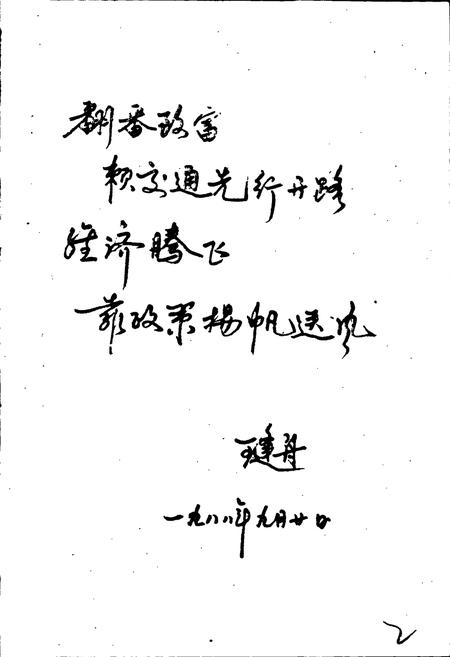 翻番致富
赖交通先行开路
经济腾飞
靠政策扬帆送风
一九八八年九月廿日
2